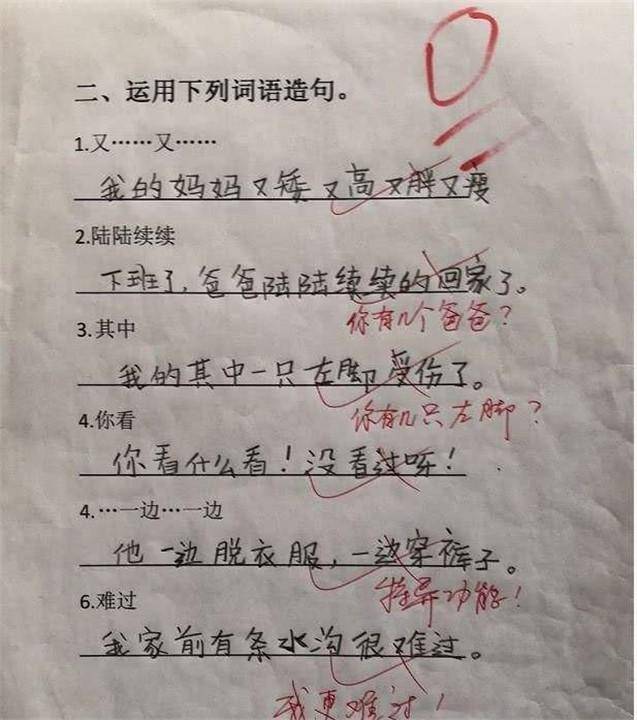 二、运用下列词语造句。
1.又……又……
我的妈妈又矮又高又胖又瘦
2.陆陆续续
下班了,爸爸陆陆续续的回家了。
你有几个爸爸?
3.其中
我的其中一只左脚受伤了。
你有几只左脚?
4.你看
你看什么看!没看过呀!
4.…一边…一边
他一边脱衣服,一边穿裤子。
特异功能!
6.难过
我家前有条水沟很难过。
我更难过!